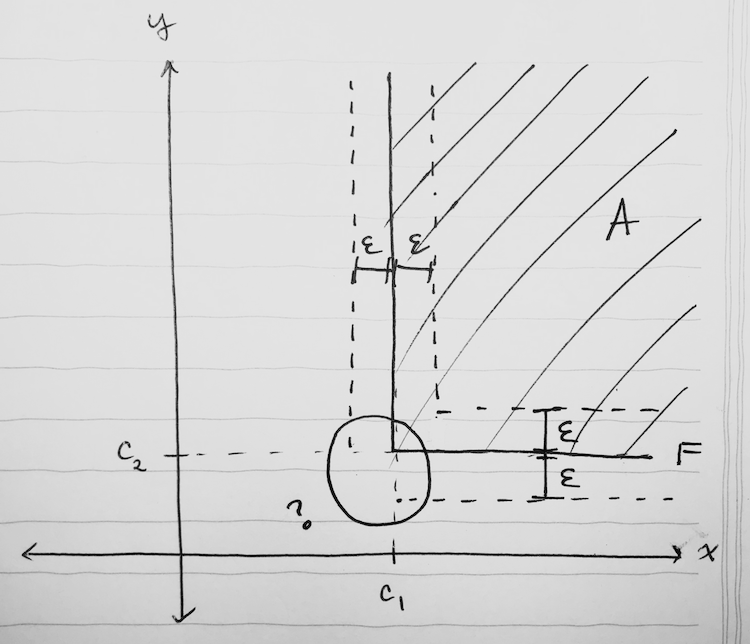 y
A
ε ε
ε
C₂ F
ε
?
x
C₁